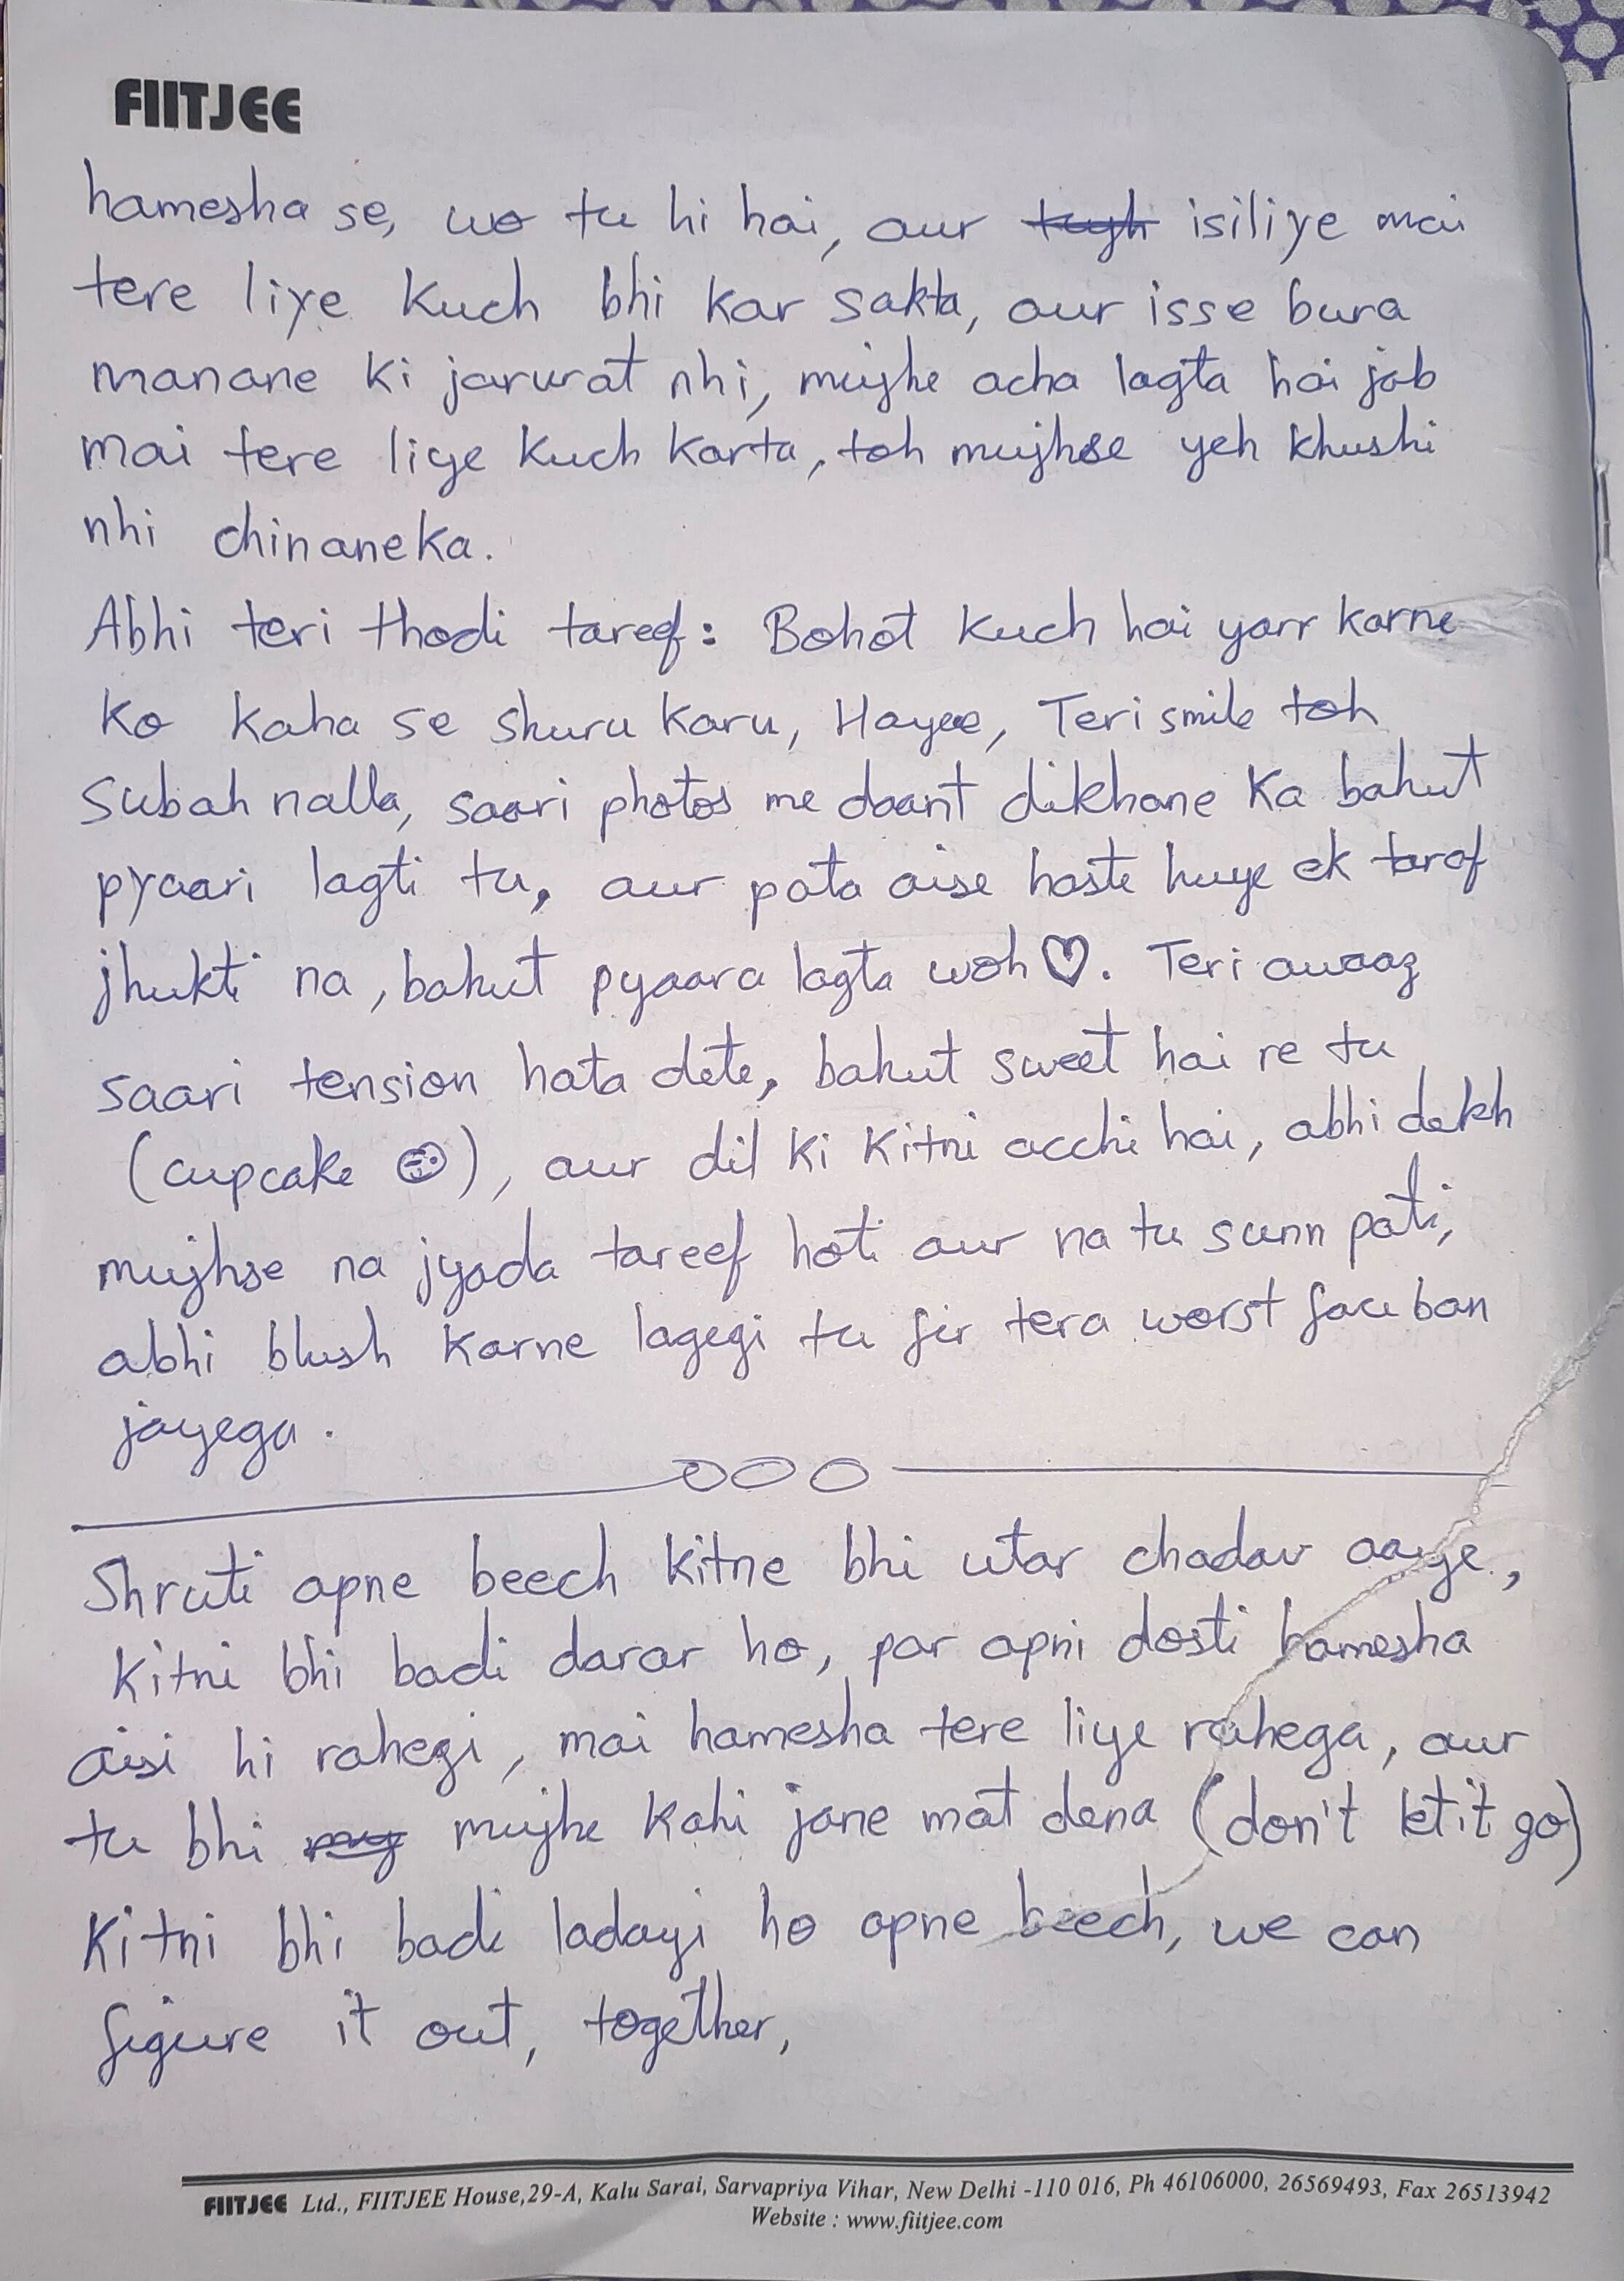 FIITJEE
hamesha se, wo tu hi hai, aur isiliye mai
tere liye kuch bhi kar sakta, aur isse bura
manane ki jarurat nhi, mujhe acha lagta hai jab
mai tere liye kuch karta, toh mujhse yeh khushi
nhi chinaneka.
Abhi teri thodi tareef: Bohot kuch hai yarr karne
ko kaha se shuru karu, Hayee, Teri smile toh
Subah nalla, saari photos me daant dikhane ka bahut
pyaari lagti tu, aur pata aise haste huye ek taraf
jhukti na, bahut pyaara lagta woh♡. Teri awaaz
saari tension hata dete, bahut sweet hai re tu
(cupcake 😉), aur dil ki kitni acchi hai, abhi dekh
mujhse na jyada tareef hoti aur na tu sunn pati,
abhi blush karne lagegi tu fir tera worst face ban
jayega.
Shruti apne beech kitne bhi utar chadav aaye,
kitni bhi badi darar ho, par apni dosti hamesha
aisi hi rahegi, mai hamesha tere liye rahega, aur
tu bhi mujhe kahi jane mat dena (don't let it go)
Kitni bhi badi ladayi ho apne beech, we can
figure it out, together,
FIITJEE Ltd., FIITJEE House,29-A, Kalu Sarai, Sarvapriya Vihar, New Delhi -110 016, Ph 46106000, 26569493, Fax 26513942
Website : www.fiitjee.com